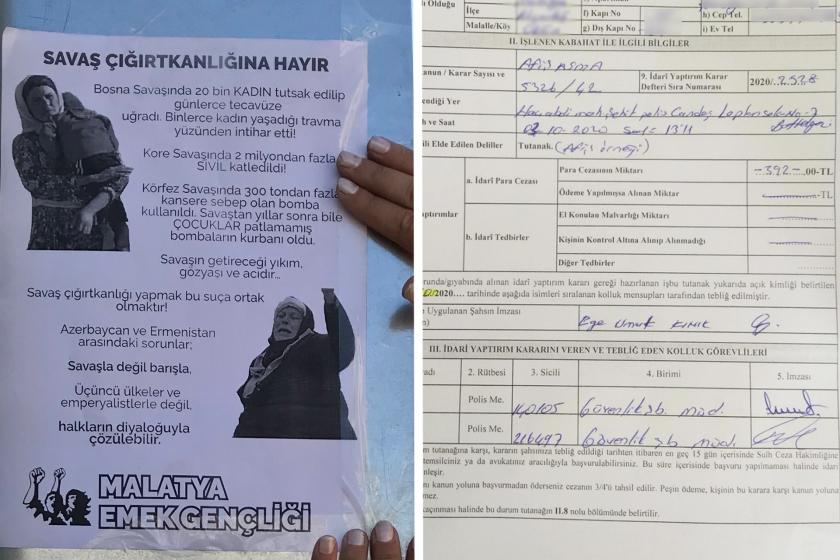 SAVAŞ ÇIĞIRTKANLIĞINA HAYIR
Bosna Savaşında 20 bin KADIN tutsak edilip
günlerce tecavüze
uğradı. Binlerce kadın yaşadığı travma
yüzünden intihar etti!
Kore Savaşında 2 milyondan fazla
SİVİL katledildi!
Körfez Savaşında 300 tondan fazla
kansere sebep olan bomba
kullanıldı. Savaştan yıllar sonra bile
ÇOCUKLAR patlamamış
bombaların kurbanı oldu.
Savaşın getireceği yıkım,
gözyaşı ve acıdır...
Savaş çığırtkanlığı yapmak bu suça ortak
olmaktır!
Azerbaycan ve Ermenistan
arasındaki sorunlar;
Savaşla değil barışla,
Üçüncü ülkeler ve
emperyalistlerle değil,
halkların diyaloğuyla
çözülebilir.
MALATYA
EMEK GENÇLİĞİ
Olduğu
İlçe
f) Kapı No
h) Cep Tel.
Malalle/Köy
g) Dış Kapı No
i) Ev Tel
II. İŞLENEN KABAHAT İLE İLGİLİ BİLGİLER
anun / Karar Sayısı ve
AFİŞ ASMA
5326/42
9. İdari Yaptırım Karar
Defteri Sıra Numarası
2020/.2528
endiği Yer
h ve Saat
02-10-2020
ili Elde Edilen Deliller
Tutanak. (AFİŞ örneği)
a. İdari Para Cezası
Para Cezasının Miktarı
-392-.00-TL
Ödeme Yapılmışsa Alınan Miktar
-TL
aptırımlar
b. İdari Tedbirler
El Konulan Malvarlığı Miktarı
Kişinin Kontrol Altına Alınıp Alınmadığı
Diğer Tedbirler
runda/gıyabında alınan idari yaptırım kararı gereği hazırlanan işbu tutanak yukarıda açık kimliği belirtilen
2020.... tarihinde aşağıda isimleri sıralanan kolluk mensupları tarafından tebliğ edilmiştir.
Uygulanan Şahsın İmzası
Ege Umut KINIK
III. İDARİ YAPTIRIM KARARINI VEREN VE TEBLİĞ EDEN KOLLUK GÖREVLİLERİ
adı
2. Rütbesi
3. Sicili
4. Birimi
5. İmzası
Polis Me.
140105
Güvenlik şb. müd.
Polis Me.
216497
Güvenlik şb müd.
m tutanağına karşı, kararın şahsınıza tebliğ edildiği tarihten itibaren en geç 15 gün içerisinde Sulh Ceza Hakimliğine
temsilciniz ya da avukatınız aracılığıyla başvurulabilirsiniz. Bu süre içerisinde başvuru yapılmaması halinde idari
nleşir.
nı kanun yoluna başvurmadan öderseniz cezanın 3/4'ü tahsil edilir. Peşin ödeme, kişinin bu karara karşı kanun yoluna
mez.
kaçınması halinde bu durum tutanağın II.8 nolu bölümünde belirtilir.